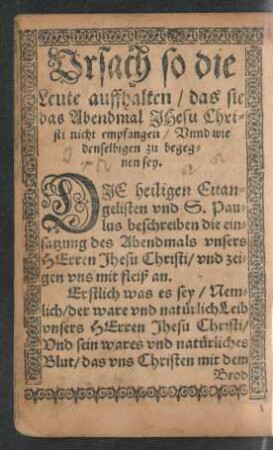 Vrsach so die
Leute auffhalten / das sie
das Abendmal JHesu Chri-
sti nicht empfangen / Vnnd wie
denselbigen zu begeg-
nen sey.
DIE heiligen Euan-
gelisten vnd S. Pau-
lus beschreiben die ein-
satzung des Abendmals vnsers
HErren Jhesu Christi / vnd zei-
gen vns mit fleiß an.
Erstlich was es sey / Nem-
lich / der ware vnd natürlich Leib
vnsers HErren Jhesu Christi /
Vnd sein wares vnd natürliches
Blut / das vns Christen mit dem
Brod